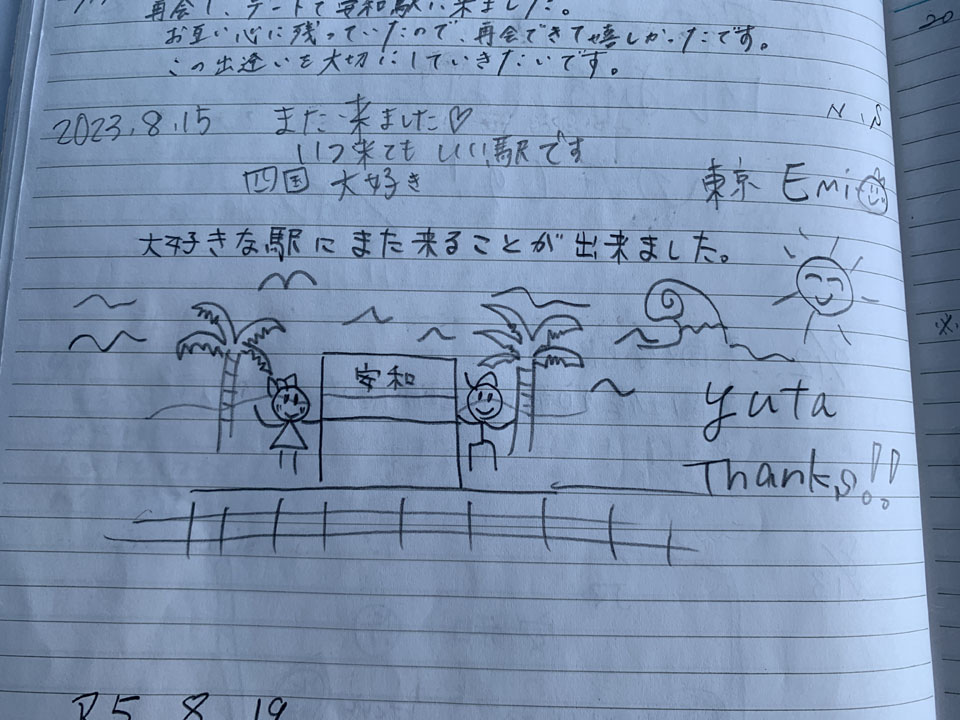 再会し、デートで安和駅に来ました。
お互い心に残っていたので、再会できて嬉しかったです。
この出逢いを大切にしていきたいです。
N.S
2023.8.15 また来ました♡
いつ来てもいい駅です
四国 大好き
東京 Emi
大好きな駅にまた来ることが出来ました。
安和
yuta
Thanks!!
R5 8 19
20
※